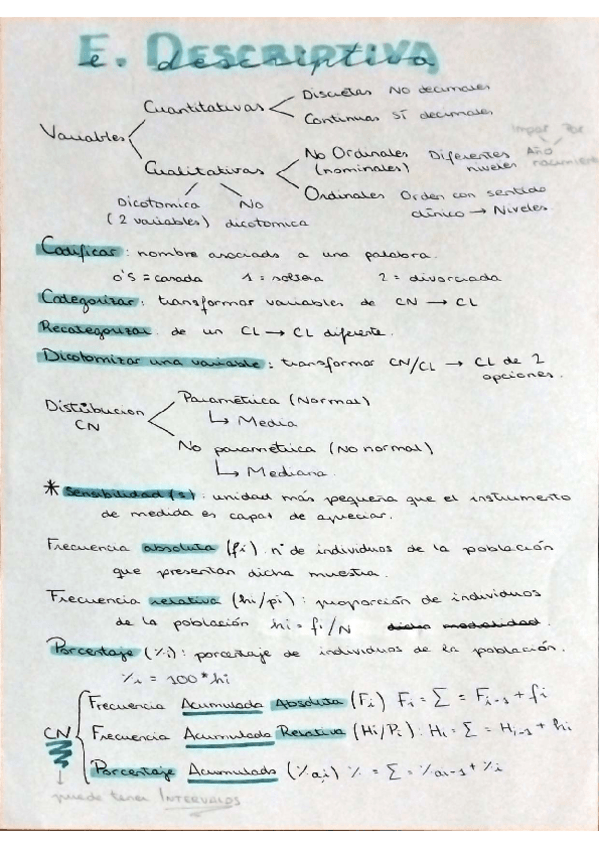 E. DESCRIPTIVA
e. descriptiva
Variables
Cuantitativas
Discretas NO decimales
Continuas SÍ decimales
Cualitativas
No Ordinales (nominales) Diferentes niveles
Año
Ordinales Orden con sentido clínico → Niveles
Dicotomica (2 variables)
No dicotomica
Codificar: nombre asociado a una palabra.
0's = casada 1 = soltera 2 = divorciada
Categorizar: transformar variables de CN → CL
Recategorizar de un CL → CL diferente.
Dicotomizar una variable: transformar CN/CL → CL de 2
opciones.
Distribucion CN
Paramétrica (Normal)
↳ Media
No paramétrica (No normal)
↳ Mediana
* Sensibilidad (s): unidad más pequeña que el instrumento
de medida es capaz de apreciar.
Frecuencia absoluta (fi). nº de individuos de la población
que presentan dicha muestra.
Frecuencia relativa (hi/pi): proporción de individuos
de la población hi = fi/N dicha modalidad.
Porcentaje (%i): porcentaje de individuos de la población.
%i = 100*hi
CN
Frecuencia Acumulada Absoluta (Fi) Fi = Σ = Fi-1 + fi
Frecuencia Acumulada Relativa (Hi/Pi). Hi = Σ = Hi-1 + hi
Porcentaje Acumulado (%ai) % = Σ = %ai-1 + %i
↓
puede tener INTERVALOS